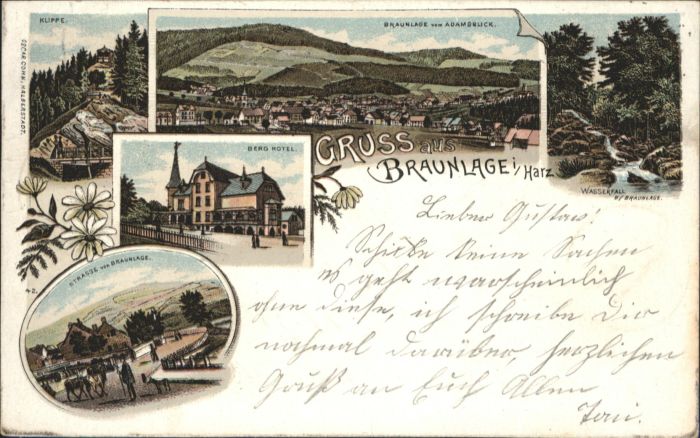 KLIPPE.
OSCAR COHN, HALBERSTADT.
BRAUNLAGE VOM ADAMSBLICK.
BERG HOTEL.
GRUSS aus
BRAUNLAGE i/Harz
WASSERFALL
BEI BRAUNLAGE.
STRASSE VON BRAUNLAGE.
42.
Lieber Gustav!
Schicke keine Sachen
es geht warscheinlich
ohne diese, ich schreibe Dir
nochmal darüber, herzlichen
Gruß an Euch Allen